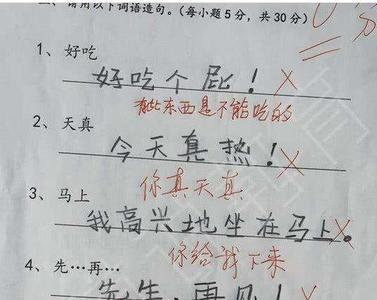 请用以下词语造句。(每小题5分,共30分)
1、好吃
好吃个屁!
有些东西是不能吃的
2、天真
今天真热!
你真天真
3、马上
我高兴地坐在马上。
你给我下来
4、先…再…
先生,再见!